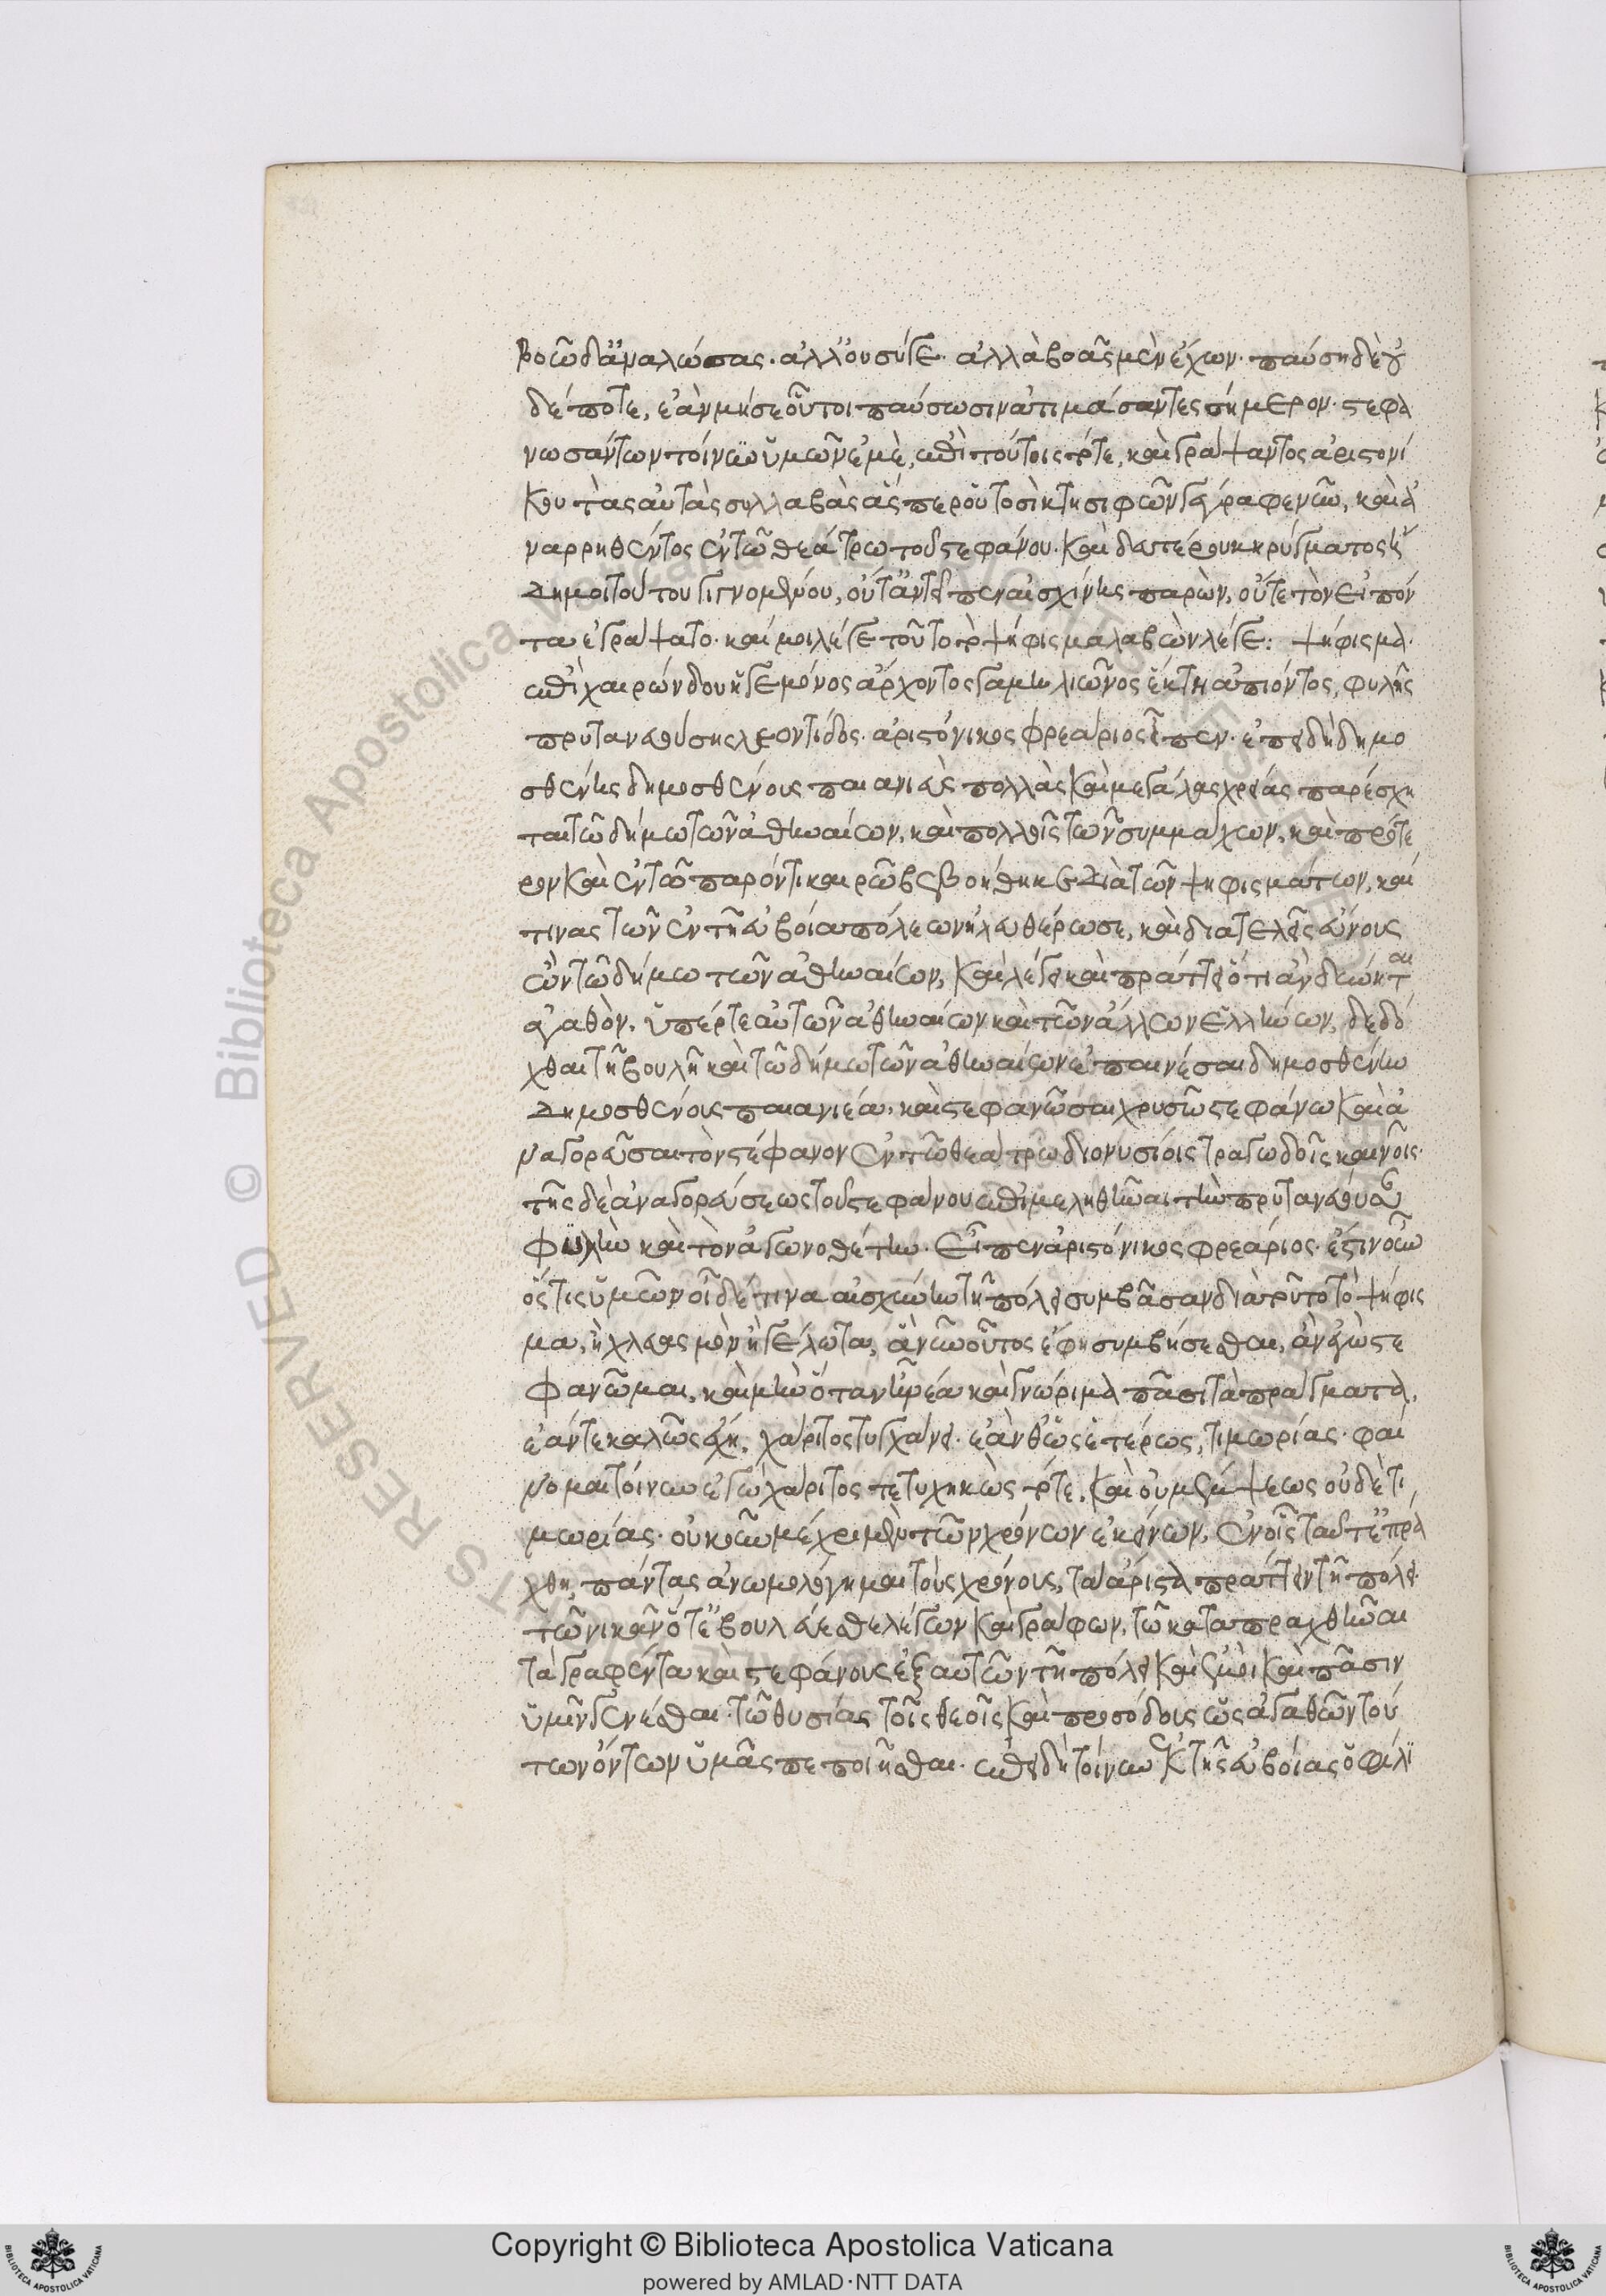 βοίᾳ δ' ἀναλώσας. ἀλλ' οὐ σύ γε. ἀλλὰ βοᾷς μὲν ἔχων. παύσῃ δὲ οὐ
δέποτε, ἐὰν μή σε οὗτοι παύσωσιν ἀτιμάσαντες σήμερον. στεφα
νωσάντων τοίνυν ὑμῶν ἐμὲ, ἐπὶ τούτοις τότε, καὶ γράψαντος ἀριστονί
κου τὰς αὐτὰς συλλαβὰς ἅσπερ οὑτοσὶ κτησιφῶν γέγραφε νῦν, καὶ ἀ
ναρρηθέντος ἐν τῶ θεάτρω τοῦ στεφάνου. καὶ δευτέρου κηρύγματος ἤ
δη μοι τούτου γιγνομένου, οὔτ' ἀντεῖπεν αἰσχίνης παρὼν, οὔτε τὸν εἰπόν
τα ἐγράψατο. καί μοι λέγε τοῦτο τὸ ψήφισμα λαβὼν λέγε: ψήφισμα.
ἐπὶ χαιρώνδου ἡγεμόνος ἄρχοντος γαμηλιῶνος ἕκτῃ ἀπιόντος, φυλῆς
πρυτανευούσης λεοντίδος. ἀριστόνικος φρεάριος εἶπεν. ἐπειδὴ δημο
σθένης δημοσθένους παιανιεὺς πολλὰς καὶ μεγάλας χρείας παρέσχη
ται τῶ δήμω τῶν ἀθηναίων, καὶ πολλοῖς τῶν συμμάχων, καὶ πρότε
ρον καὶ ἐν τῶ παρόντι καιρῶ βεβοήθηκε διὰ τῶν ψηφισμάτων, καί
τινας τῶν ἐν τῆ εὐβοία πόλεων ἠλευθέρωσε, καὶ διατελεῖ εὔνους
ὢν τῶ δήμω τῶν ἀθηναίων, καὶ λέγει καὶ πράττει ὅτι ἂν δύνηται
ἀγαθὸν, ὑπέρ τε αὐτῶν ἀθηναίων καὶ τῶν ἄλλων ἑλλήνων, δεδό
χθαι τῆ βουλῆ καὶ τῶ δήμω τῶν ἀθηναίων ἐπαινέσαι δημοσθένην
δημοσθένους παιανιέα, καὶ στεφανῶσαι χρυσῶ στεφάνω καὶ ἀ
ναγορεῦσαι τὸν στέφανον ἐν τῶ θεάτρω διονυσίοις τραγωδοῖς καινοῖς.
τῆς δὲ ἀναγορεύσεως τοῦ στεφάνου ἐπιμεληθῆναι τὴν πρυτανεύουσαν
φυλὴν καὶ τὸν ἀγωνοθέτην. εἶπεν ἀριστόνικος φρεάριος. ἔστιν οὖν
ὅστις ὑμῶν οἶδέ τινα αἰσχύνην τῆ πόλει συμβᾶσαν διὰ τοῦτο τὸ ψήφισ
μα, ἢ χλευασμὸν ἢ γέλωτα, ἃ νῦν οὗτος ἔφη συμβήσεσθαι, ἂν ἐγὼ στε
φανῶμαι, καὶ μὴν ὅταν ᾖ νέα καὶ γνώριμα πᾶσι τὰ πράγματα,
ἐάν τε καλῶς ἔχῃ, χάριτος τυγχάνει. ἐάν θ' ὡς ἑτέρως, τιμωρίας. φαί
νομαι τοίνυν ἐγὼ χάριτος τετυχηκὼς τότε, καὶ οὐ μέμψεως οὐδὲ τι
μωρίας. οὐκοῦν μέχρι μὲν τῶν χρόνων ἐκείνων, ἐν οἷς ταῦτ' ἐπρά
χθη, πάντας ἀνωμολόγημαι τοὺς χρόνους, τὰ ἄριστα πράττειν τῆ πόλει.
τῶ νικᾶν ὅτ' ἐβουλεύεσθε λέγων καὶ γράφων, τῶ καταπραχθῆναι
τὰ γραφέντα καὶ στεφάνους ἐξ αὐτῶν τῆ πόλει καὶ ἐμοὶ καὶ πᾶσιν
ὑμῖν γενέσθαι. τῶ θυσίας τοῖς θεοῖς καὶ προσόδους ὡς ἀγαθῶν τού
των ὄντων ὑμᾶς πεποιῆσθαι. ἐπειδὴ τοίνυν ἐκ τῆς εὐβοίας ὁ φίλι